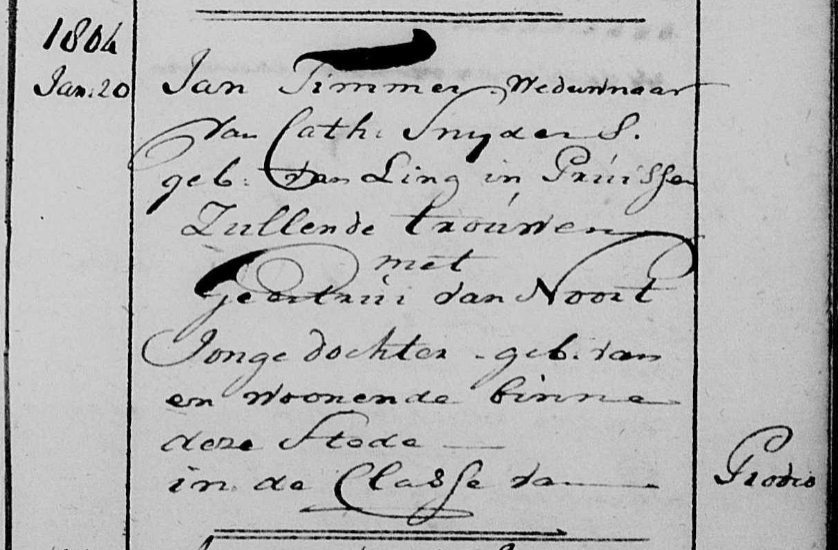 1804
Jan: 20
Jan Timmer Weduwnaar
van Cath: Snyders.
geb: van Ling in Pruissen
Zullende trouwen
met
Geertrui van Noort
Jonge dochter - geb. van
en woonende binne
deze Stede
in de Classe van
Prodeo